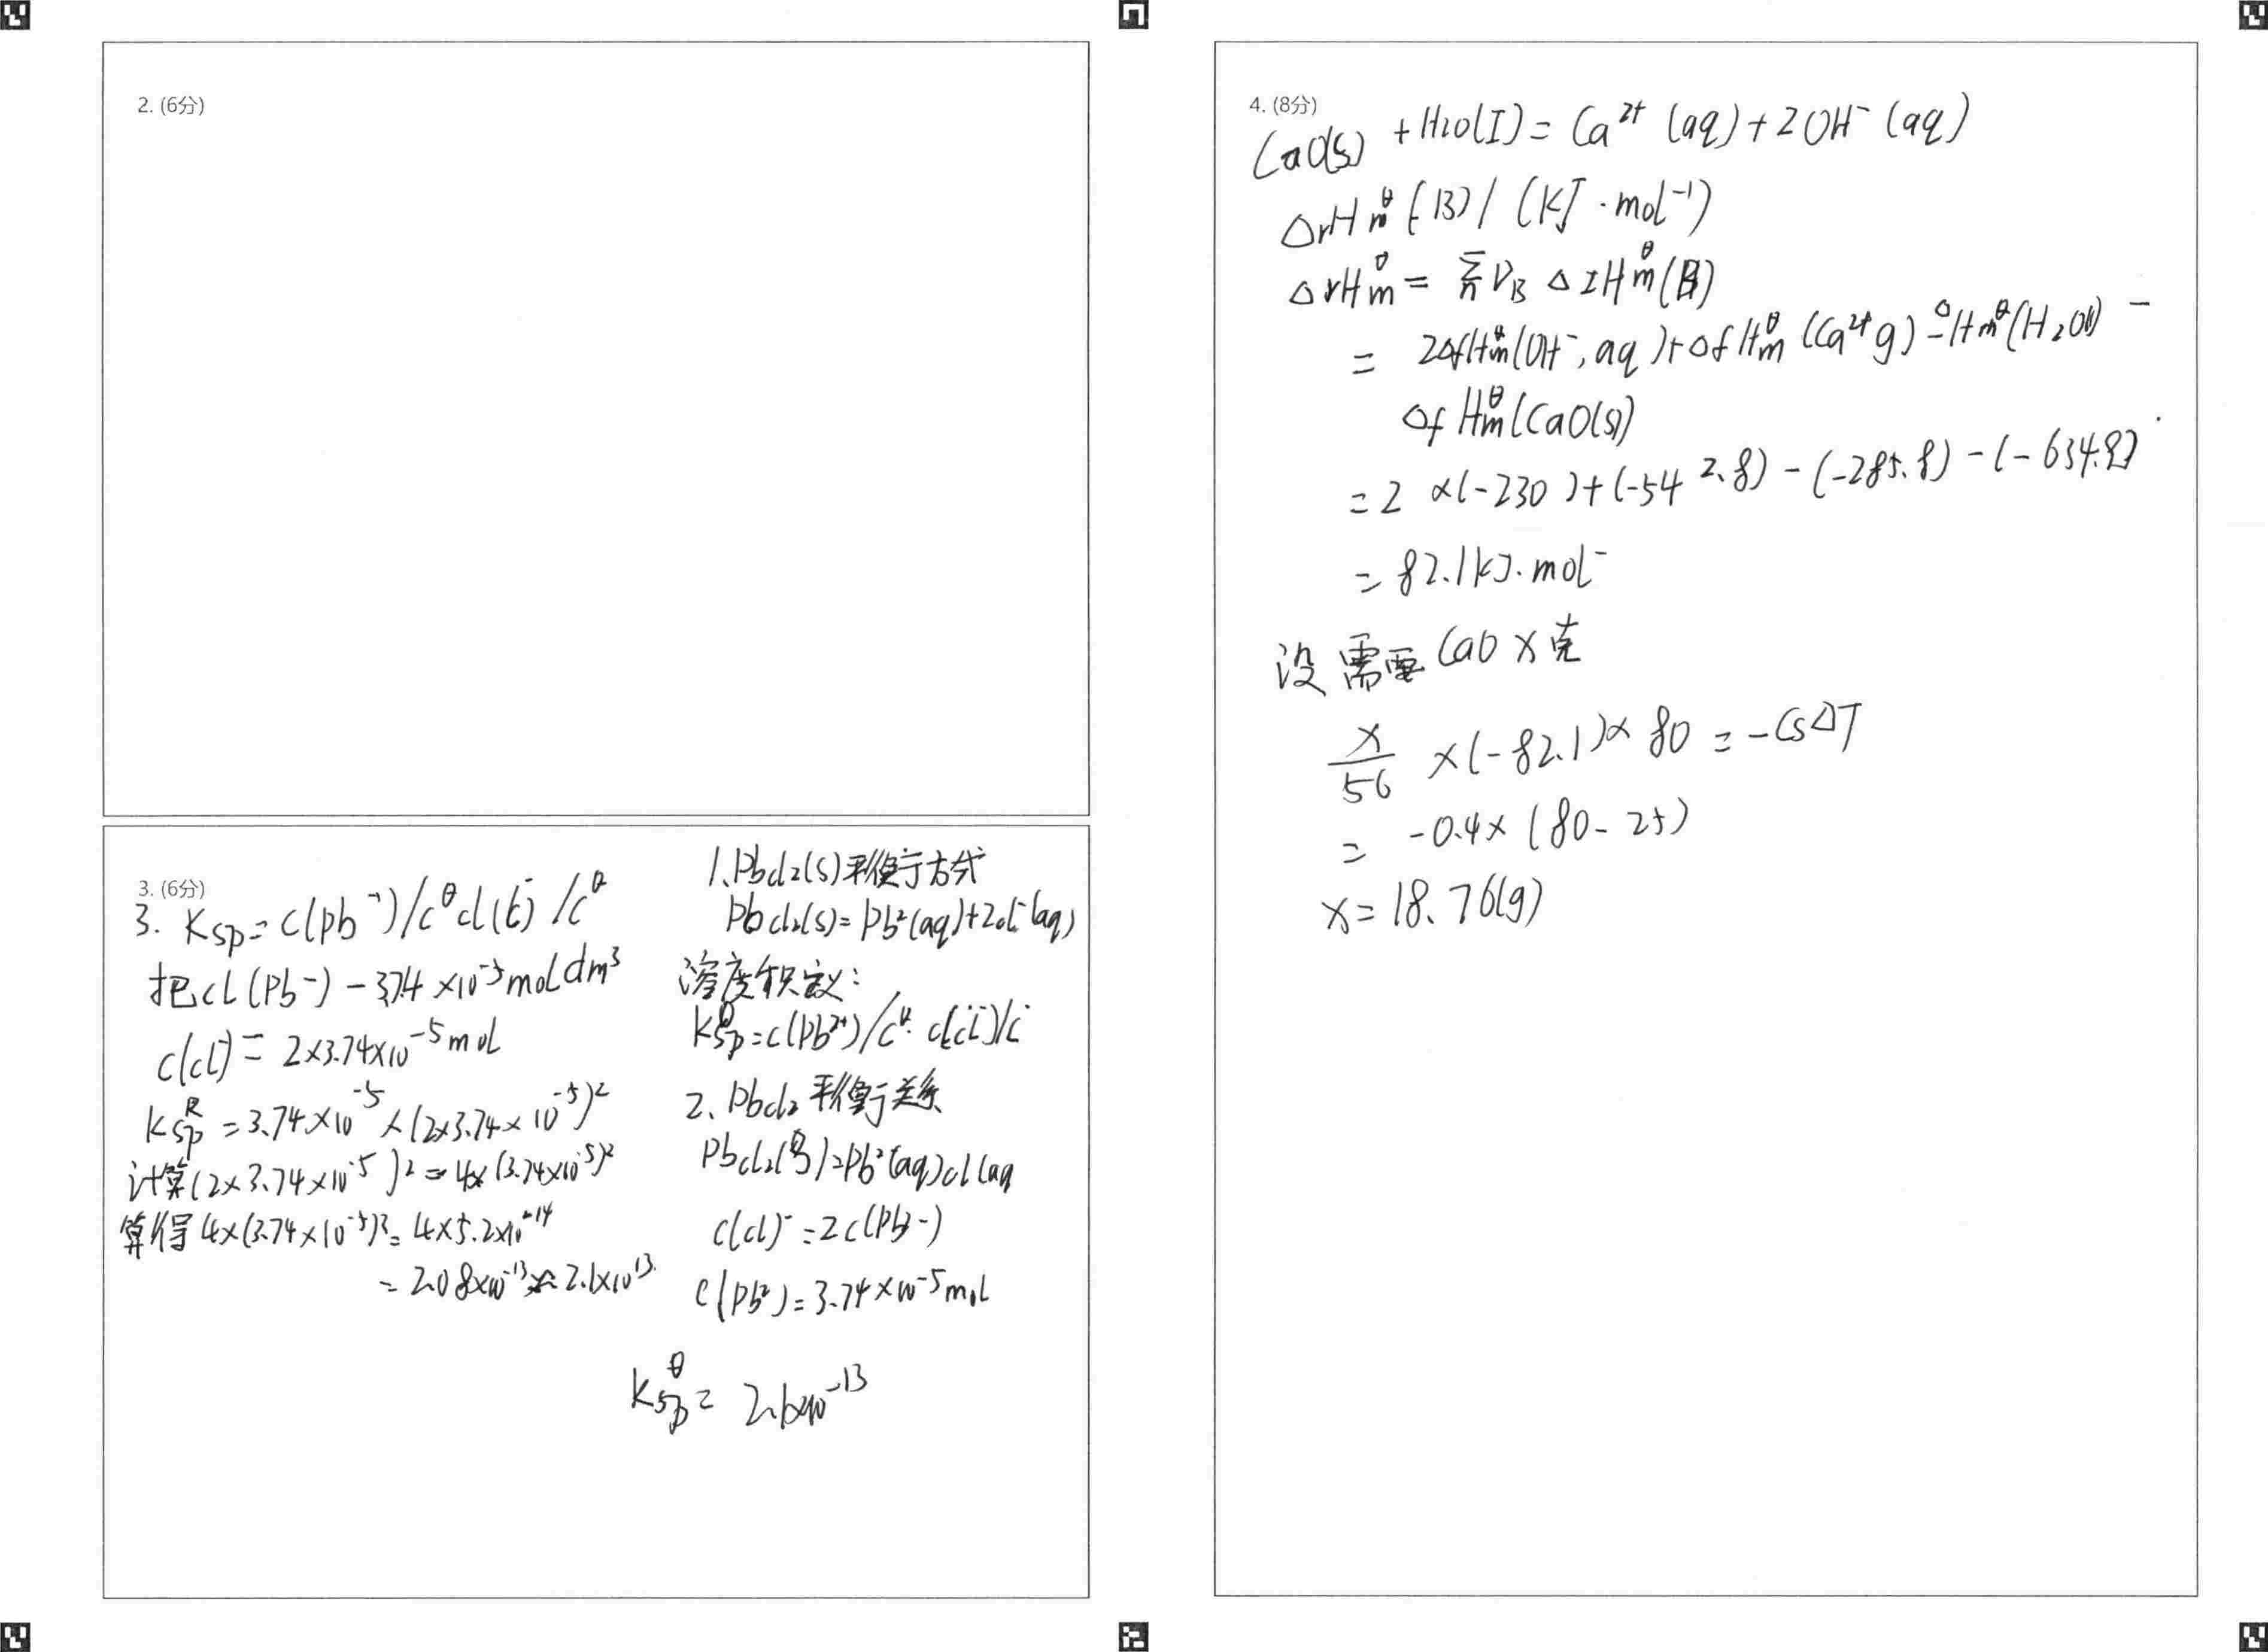 2. (6分)
3. (6分)
3. Ksp = c(Pb⁻)/c^θ cl(c̄)/c^θ
把cl(Pb⁻) - 3.74×10⁻⁵mol dm³
c(cl⁻) = 2×3.74×10⁻⁵mol
Ksp = 3.74×10⁻⁵×(2×3.74×10⁻⁵)²
计算(2×3.74×10⁻⁵)² = 4×(3.74×10⁻⁵)²
算得4×(3.74×10⁻⁵)³ = 4×5.2×10⁻¹⁴
= 2.08×10⁻¹³ ≈ 2.1×10¹³
1、Pbcl₂(s)平衡方式
Pbcl₂(s) = Pb²(aq)+2cl⁻(aq)
溶度积定义:
Ksp^θ = c(Pb²⁺)/c^θ · c(cl⁻)/c
2、Pbcl₂平衡关系
Pbcl₂( )=Pb²(aq)cl(aq
c(cl)⁻ = 2c(Pb-)
c(Pb²) = 3.74×10⁻⁵mol
Ksp^θ = 2.1×10⁻¹³
4. (8分)
CaO(s) + H₂O(I) = Ca²⁺(aq)+2OH⁻(aq)
ΔrHm^θ(B)/(KJ·mol⁻¹)
ΔrHm^θ = Σn νB ΔIHm^θ(B)
= 2ΔfHm^θ(OH⁻, aq)+ΔfHm^θ(Ca²⁺g) - ΔHm^θ(H₂Ol) -
ΔfHm^θ(CaO(s))
= 2×(-230)+(-542.8)-(-285.8)-(-634.9)
= 82.1kJ·mol⁻
没需要CaO x克
x/56 ×(-82.1)×80 = -CsΔT
= -0.4×(80-25)
x = 18.76(g)